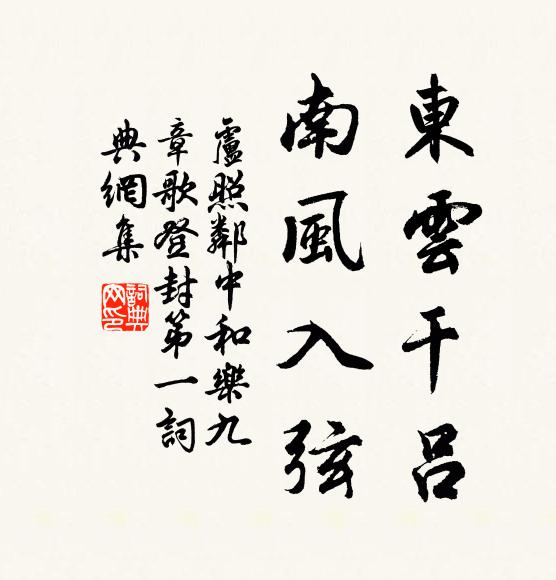 東雲干呂
南風入弦
盧照鄰中和樂九
章歌登封第一詞
典網集
詞典網印